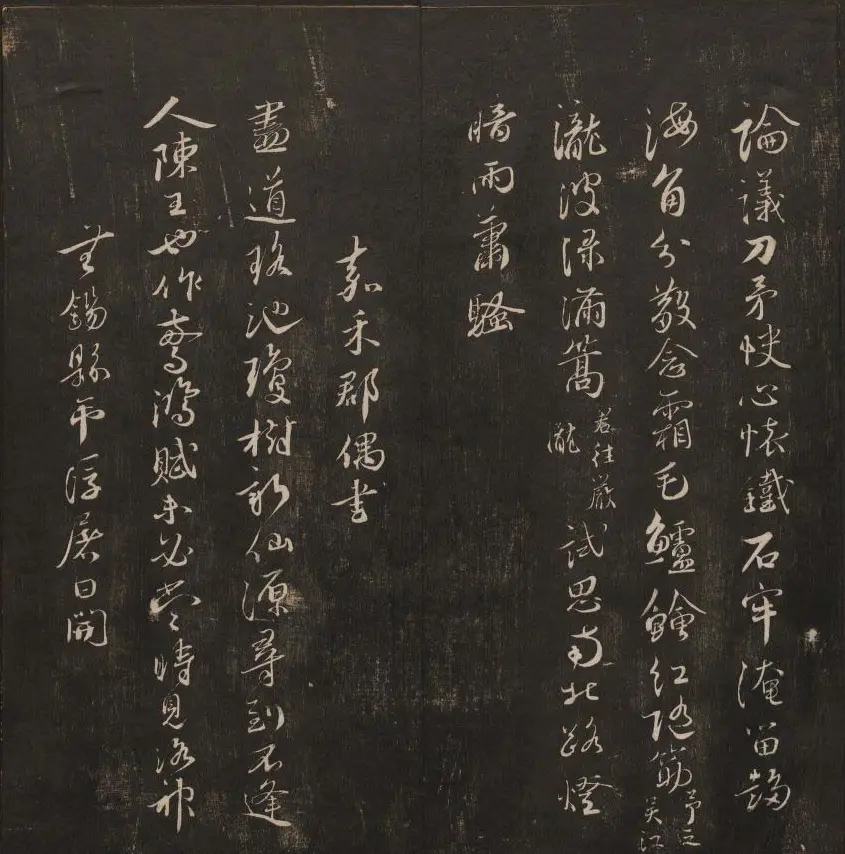 論議刀矛快心懷鐵石牢淹留趨
海角分散念霜毛鱸鱠紅隨筯予之吴江
瀧波渌滿篙君往嚴瀧試思南北路燈
暗雨蕭騷
嘉禾郡偶書
盡道瑤池瓊樹新仙源尋到不逢
人陳王也作驚鴻賦未必當時見洛神
無錫縣弔浮屠日開